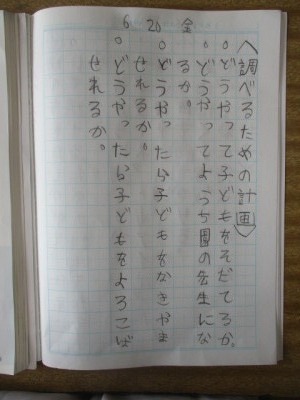 6 20 金
〈調べるための計画〉
○どうやって子どもをそだてるか。
○どうやってようち園の先生にな
るか。
○どうやったら子どもをなきやま
せれるか。
○どうやったら子どもをよろこば
せれるか。